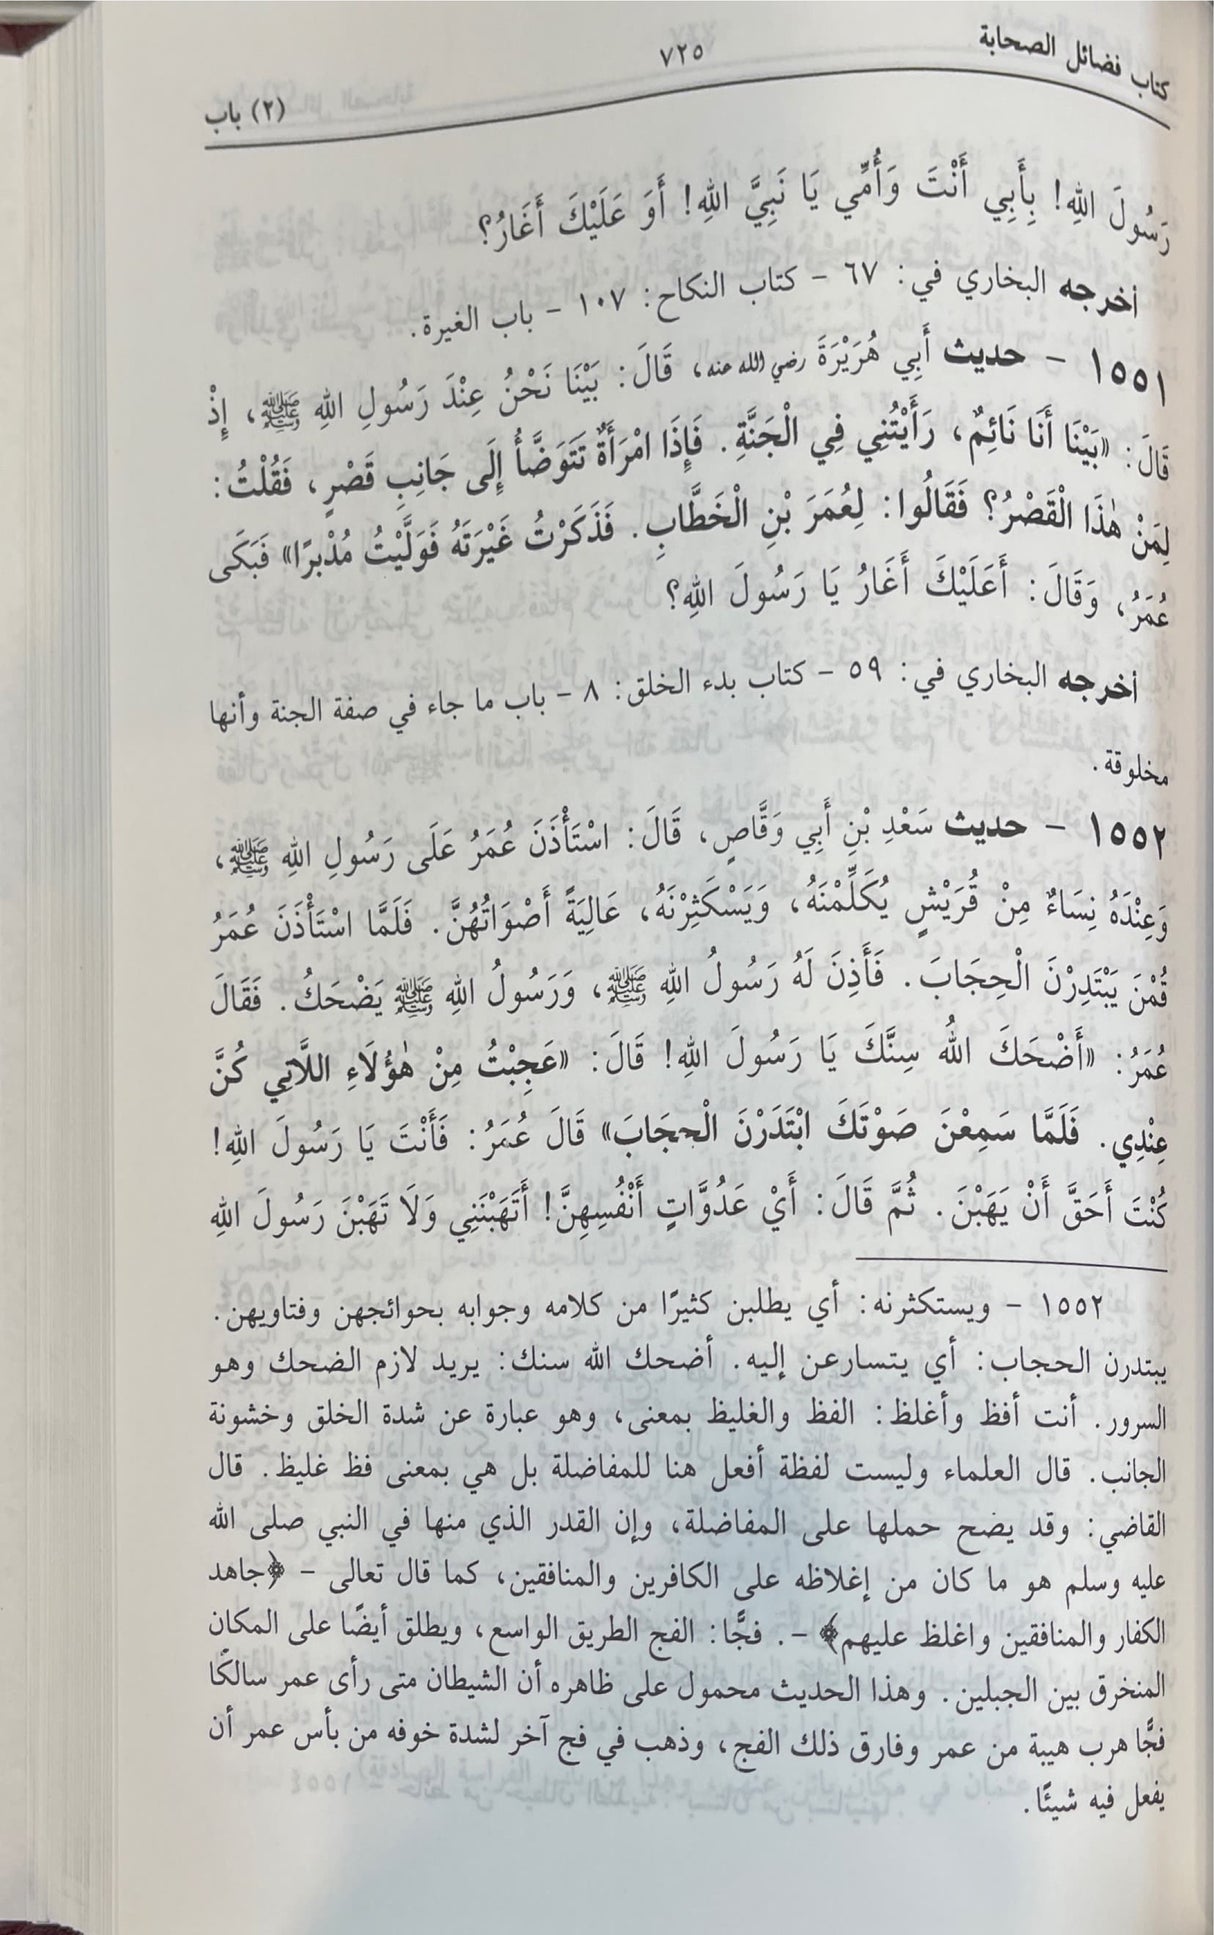 كتاب فضائل الصحابة
٧٢٥
(٢) باب
رَسُولَ اللهِ! بِأَبِي أَنْتَ وَأُمِّي يَا نَبِيَّ اللهِ! أَوَ عَلَيْكَ أَغَارُ؟
أخرجه البخاري في: ٦٧ - كتاب النكاح: ١٠٧ - باب الغيرة.
١٥٥١ - حديث أَبِي هُرَيْرَةَ رضي الله عنه، قَالَ: بَيْنَا نَحْنُ عِنْدَ رَسُولِ اللهِ ﷺ، إِذْ
قَالَ: «بَيْنَا أَنَا نَائِمٌ، رَأَيْتُنِي فِي الْجَنَّةِ. فَإِذَا امْرَأَةٌ تَتَوَضَّأُ إِلَى جَانِبِ قَصْرٍ، فَقُلْتُ:
لِمَنْ هٰذَا الْقَصْرُ؟ فَقَالُوا: لِعُمَرَ بْنِ الْخَطَّابِ. فَذَكَرْتُ غَيْرَتَهُ فَوَلَّيْتُ مُدْبِرًا» فَبَكَى
عُمَرُ، وَقَالَ: أَعَلَيْكَ أَغَارُ يَا رَسُولَ اللهِ؟
أخرجه البخاري في: ٥٩ - كتاب بدء الخلق: ٨ - باب ما جاء في صفة الجنة وأنها
مخلوقة.
١٥٥٢ - حديث سَعْدِ بْنِ أَبِي وَقَّاصٍ، قَالَ: اسْتَأْذَنَ عُمَرُ عَلَى رَسُولِ اللهِ ﷺ،
وَعِنْدَهُ نِسَاءٌ مِنْ قُرَيْشٍ يُكَلِّمْنَهُ، وَيَسْتَكْثِرْنَهُ، عَالِيَةً أَصْوَاتُهُنَّ. فَلَمَّا اسْتَأْذَنَ عُمَرُ
قُمْنَ يَبْتَدِرْنَ الْحِجَابَ. فَأَذِنَ لَهُ رَسُولُ اللهِ ﷺ، وَرَسُولُ اللهِ ﷺ يَضْحَكُ. فَقَالَ
عُمَرُ: «أَضْحَكَ اللهُ سِنَّكَ يَا رَسُولَ اللهِ! قَالَ: «عَجِبْتُ مِنْ هٰؤُلَاءِ اللَّاتِي كُنَّ
عِنْدِي. فَلَمَّا سَمِعْنَ صَوْتَكَ ابْتَدَرْنَ الْحِجَابَ» قَالَ عُمَرُ: فَأَنْتَ يَا رَسُولَ اللهِ!
كُنْتَ أَحَقَّ أَنْ يَهَبْنَ. ثُمَّ قَالَ: أَيْ عَدُوَّاتِ أَنْفُسِهِنَّ! أَتَهَبْنَنِي وَلَا تَهَبْنَ رَسُولَ اللهِ
١٥٥٢ - ويستكثرنه: أي يطلبن كثيرًا من كلامه وجوابه بحوائجهن وفتاويهن.
يبتدرن الحجاب: أي يتسارعن إليه. أضحك الله سنك: يريد لازم الضحك وهو
السرور. أنت أفظ وأغلظ: الفظ والغليظ بمعنى، وهو عبارة عن شدة الخلق وخشونة
الجانب. قال العلماء وليست لفظة أفعل هنا للمفاضلة بل هي بمعنى فظ غليظ. قال
القاضي: وقد يضح حملها على المفاضلة، وإن القدر الذي منها في النبي صلى الله
عليه وسلم هو ما كان من إغلاظه على الكافرين والمنافقين، كما قال تعالى - ﴿جاهد
الكفار والمنافقين واغلظ عليهم﴾ -. فجًّا: الفج الطريق الواسع، ويطلق أيضًا على المكان
المنخرق بين الجبلين. وهذا الحديث محمول على ظاهره أن الشيطان متى رأى عمر سالكًا
فجًّا هرب هيبة من عمر وفارق ذلك الفج، وذهب في فج آخر لشدة خوفه من بأس عمر أن
يفعل فيه شيئًا.